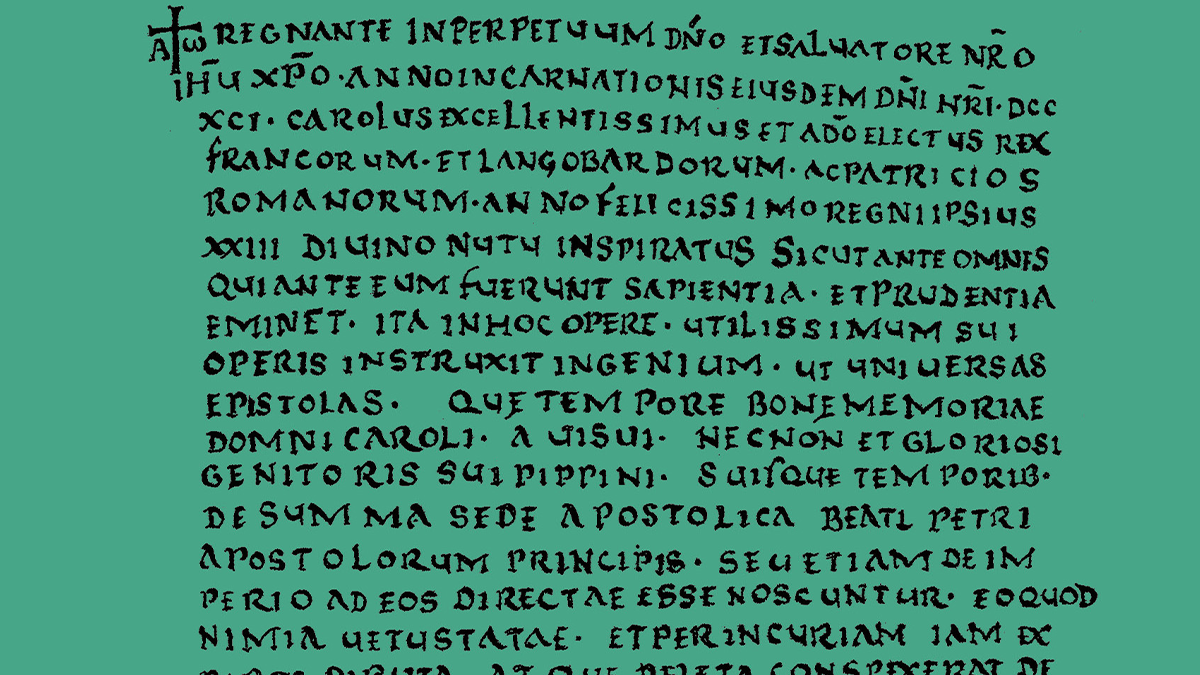 A ω REGNANTE INPERPETUUM DÑO ETSALUATORE NR̃O
IHU XPO · ANNOINCARNATIONISEIUSDEM DÑI NR̃I · DCC
XCI · CAROLUSEXCELLENTISSIMUSETADÕELECTUS REX
FRANCORUM · ETLANGOBARDORUM · ACPATRICIOS
ROMANORUM · ANNOFELICISSIMOREGNIIPSIUS
XXIII DIUINO NUTU INSPIRATUS SICUTANTEOMNES
QUIANTEEUM FUERUNT SAPIENTIA · ETPRUDENTIA
EMINET · ITA INHOC OPERE · UTILISSIMUM SUI
OPERIS INSTRUXIT INGENIUM · UT UNIUERSAS
EPISTOLAS · QUĘTEMPORE BONĘMEMORIAE
DOMNI CAROLI · AUISUI · NECNON ET GLORIOSI
GENITORIS SUIPIPPINI · SUISQUE TEMPORIB ·
DE SUMMA SEDE APOSTOLICA BEATI PETRI
APOSTOLORUM PRINCIPIS · SEUETIAM DE IM
PERIO AD EOS DIRECTAE ESSE NOSCUNTUR · EOQUOD
NIMIA UETUSTATAE · ETPERINCURIAM IAM EX
PARTE DIRUTA · ATQUE DELETA CONSPEXERAT DE